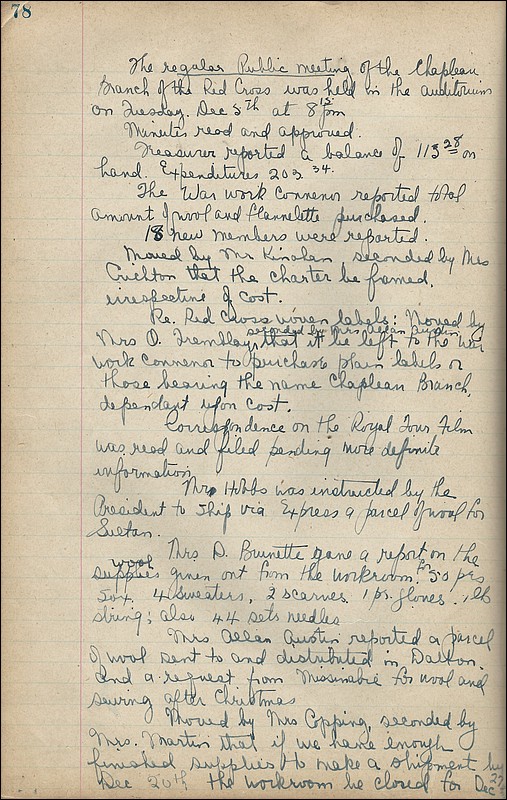 78
The regular Public meeting of the Chapleau
Branch of the Red Cross was held in the auditorium
on Tuesday. Dec 5th at 8 15 pm
Minutes read and approved.
Treasurer reported a balance of 113 28 on
hand. Expenditures 203 34.
The War work Convenor reported total
amount of wool and flannelette purchased.
18 new members were reported.
Moved by Mr Kinahan seconded by Mrs
Crichton that the charter be framed,
irrespective of cost.
Re. Red Cross woven labels: Moved by
seconded by Mrs Allan Austin
Mrs O. Tremblay, that it be left to the War
work convenor to purchase plain labels or
those bearing the name Chapleau Branch,
dependant upon cost.
Correspondence on the Royal Tour Film
was read and filed pending more definite
information.
Mrs Hobbs was instructed by the
President to ship via Express a parcel of wool for
Sultan.
Mrs D. Brunette gave a report on the
wool
supplies given out from the workroom. for 50 prs
sox, 4 sweaters, 2 scarves. 1 pr. gloves. 1 lb
string; also 44 sets needles
Mrs Allan Austin reported a parcel
of wool sent to and distributed in Dalton.
And a request from Missinabie for wool and
sewing after Christmas
Moved by Mrs Copping, seconded by
Mrs. Martin that if we have enough
finished supplies to make a shipment by
Dec 20th the workroom be closed for Dec 27th